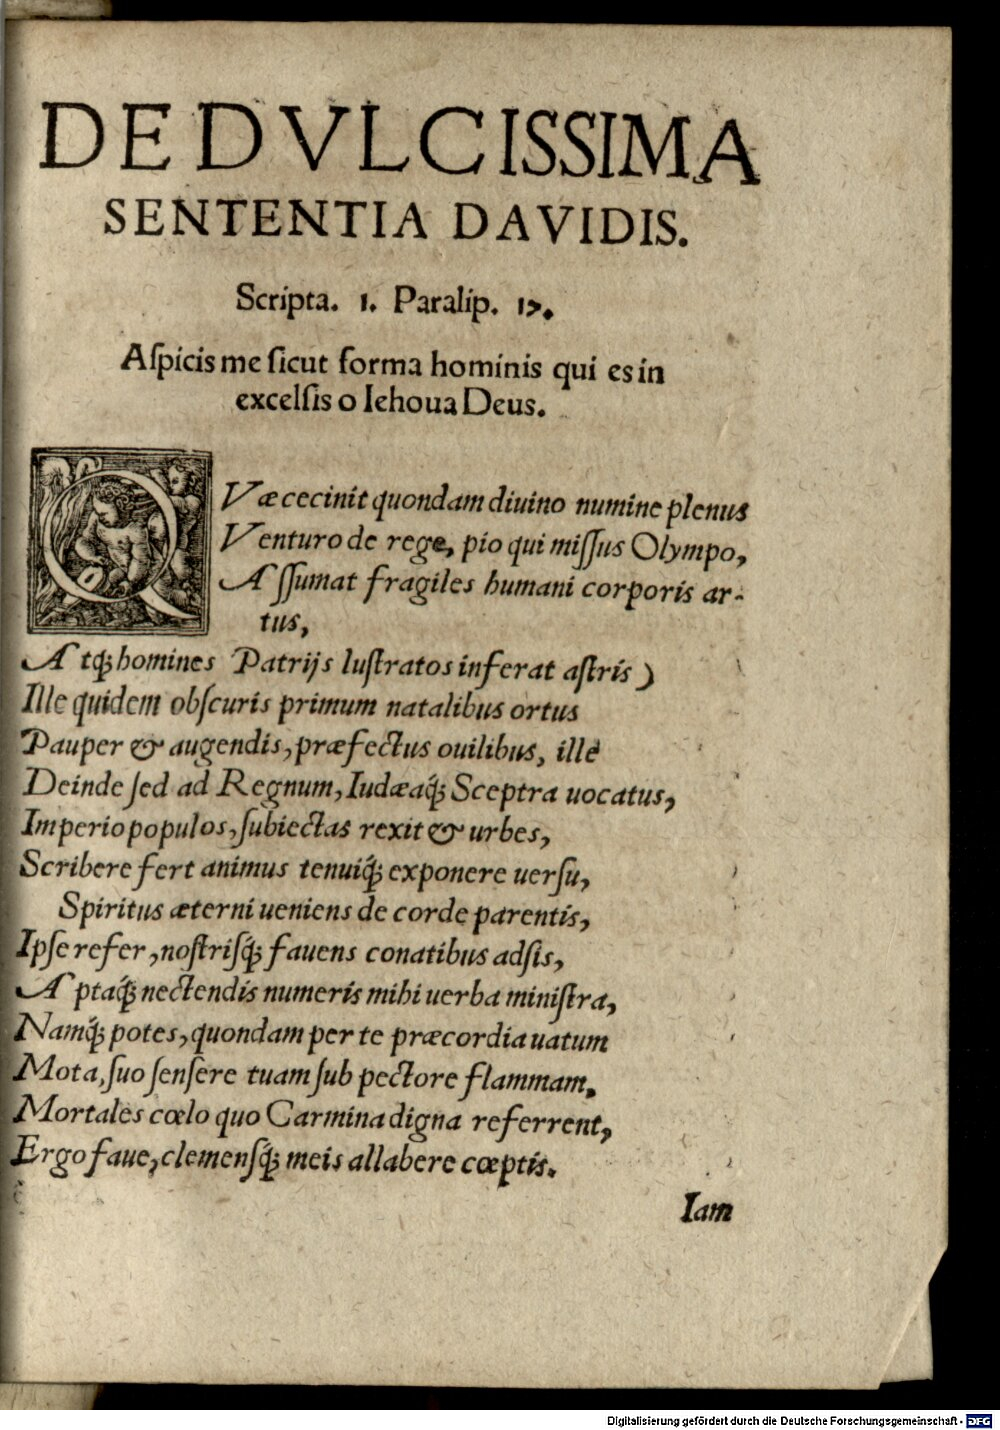 DE DVLCISSIMA
SENTENTIA DAVIDIS.
Scripta. 1. Paralip. 17.
Aſpicis me ſicut forma hominis qui es in
excelſis o Iehoua Deus.
QVæ cecinit quondam diuino numine plenus
Venturo de rege, pio qui miſſus Olympo,
Aſſumat fragiles humani corporis ar-
tus,
Atq́; homines Patrijs luſtratos inferat aſtris)
Ille quidem obſcuris primum natalibus ortus
Pauper & augendis, præfectus ouilibus, ille
Deinde ſed ad Regnum, Iudæaq́; Sceptra uocatus,
Imperio populos, ſubiectas rexit & urbes,
Scribere fert animus tenuiq́; exponere uerſu,
Spiritus æterni ueniens de corde parentis,
Ipſe refer, noſtriſq́; fauens conatibus adſis,
Aptaq́; nectendis numeris mihi uerba miniſtra,
Namq́; potes, quondam per te præcordia uatum
Mota, ſuo ſenſere tuam ſub pectore flammam.
Mortales cœlo quo Carmina digna referrent,
Ergo faue, clemenſq́; meis allabere cœptis.
Iam
Digitalisierung gefördert durch die Deutsche Forschungsgemeinschaft - DFG